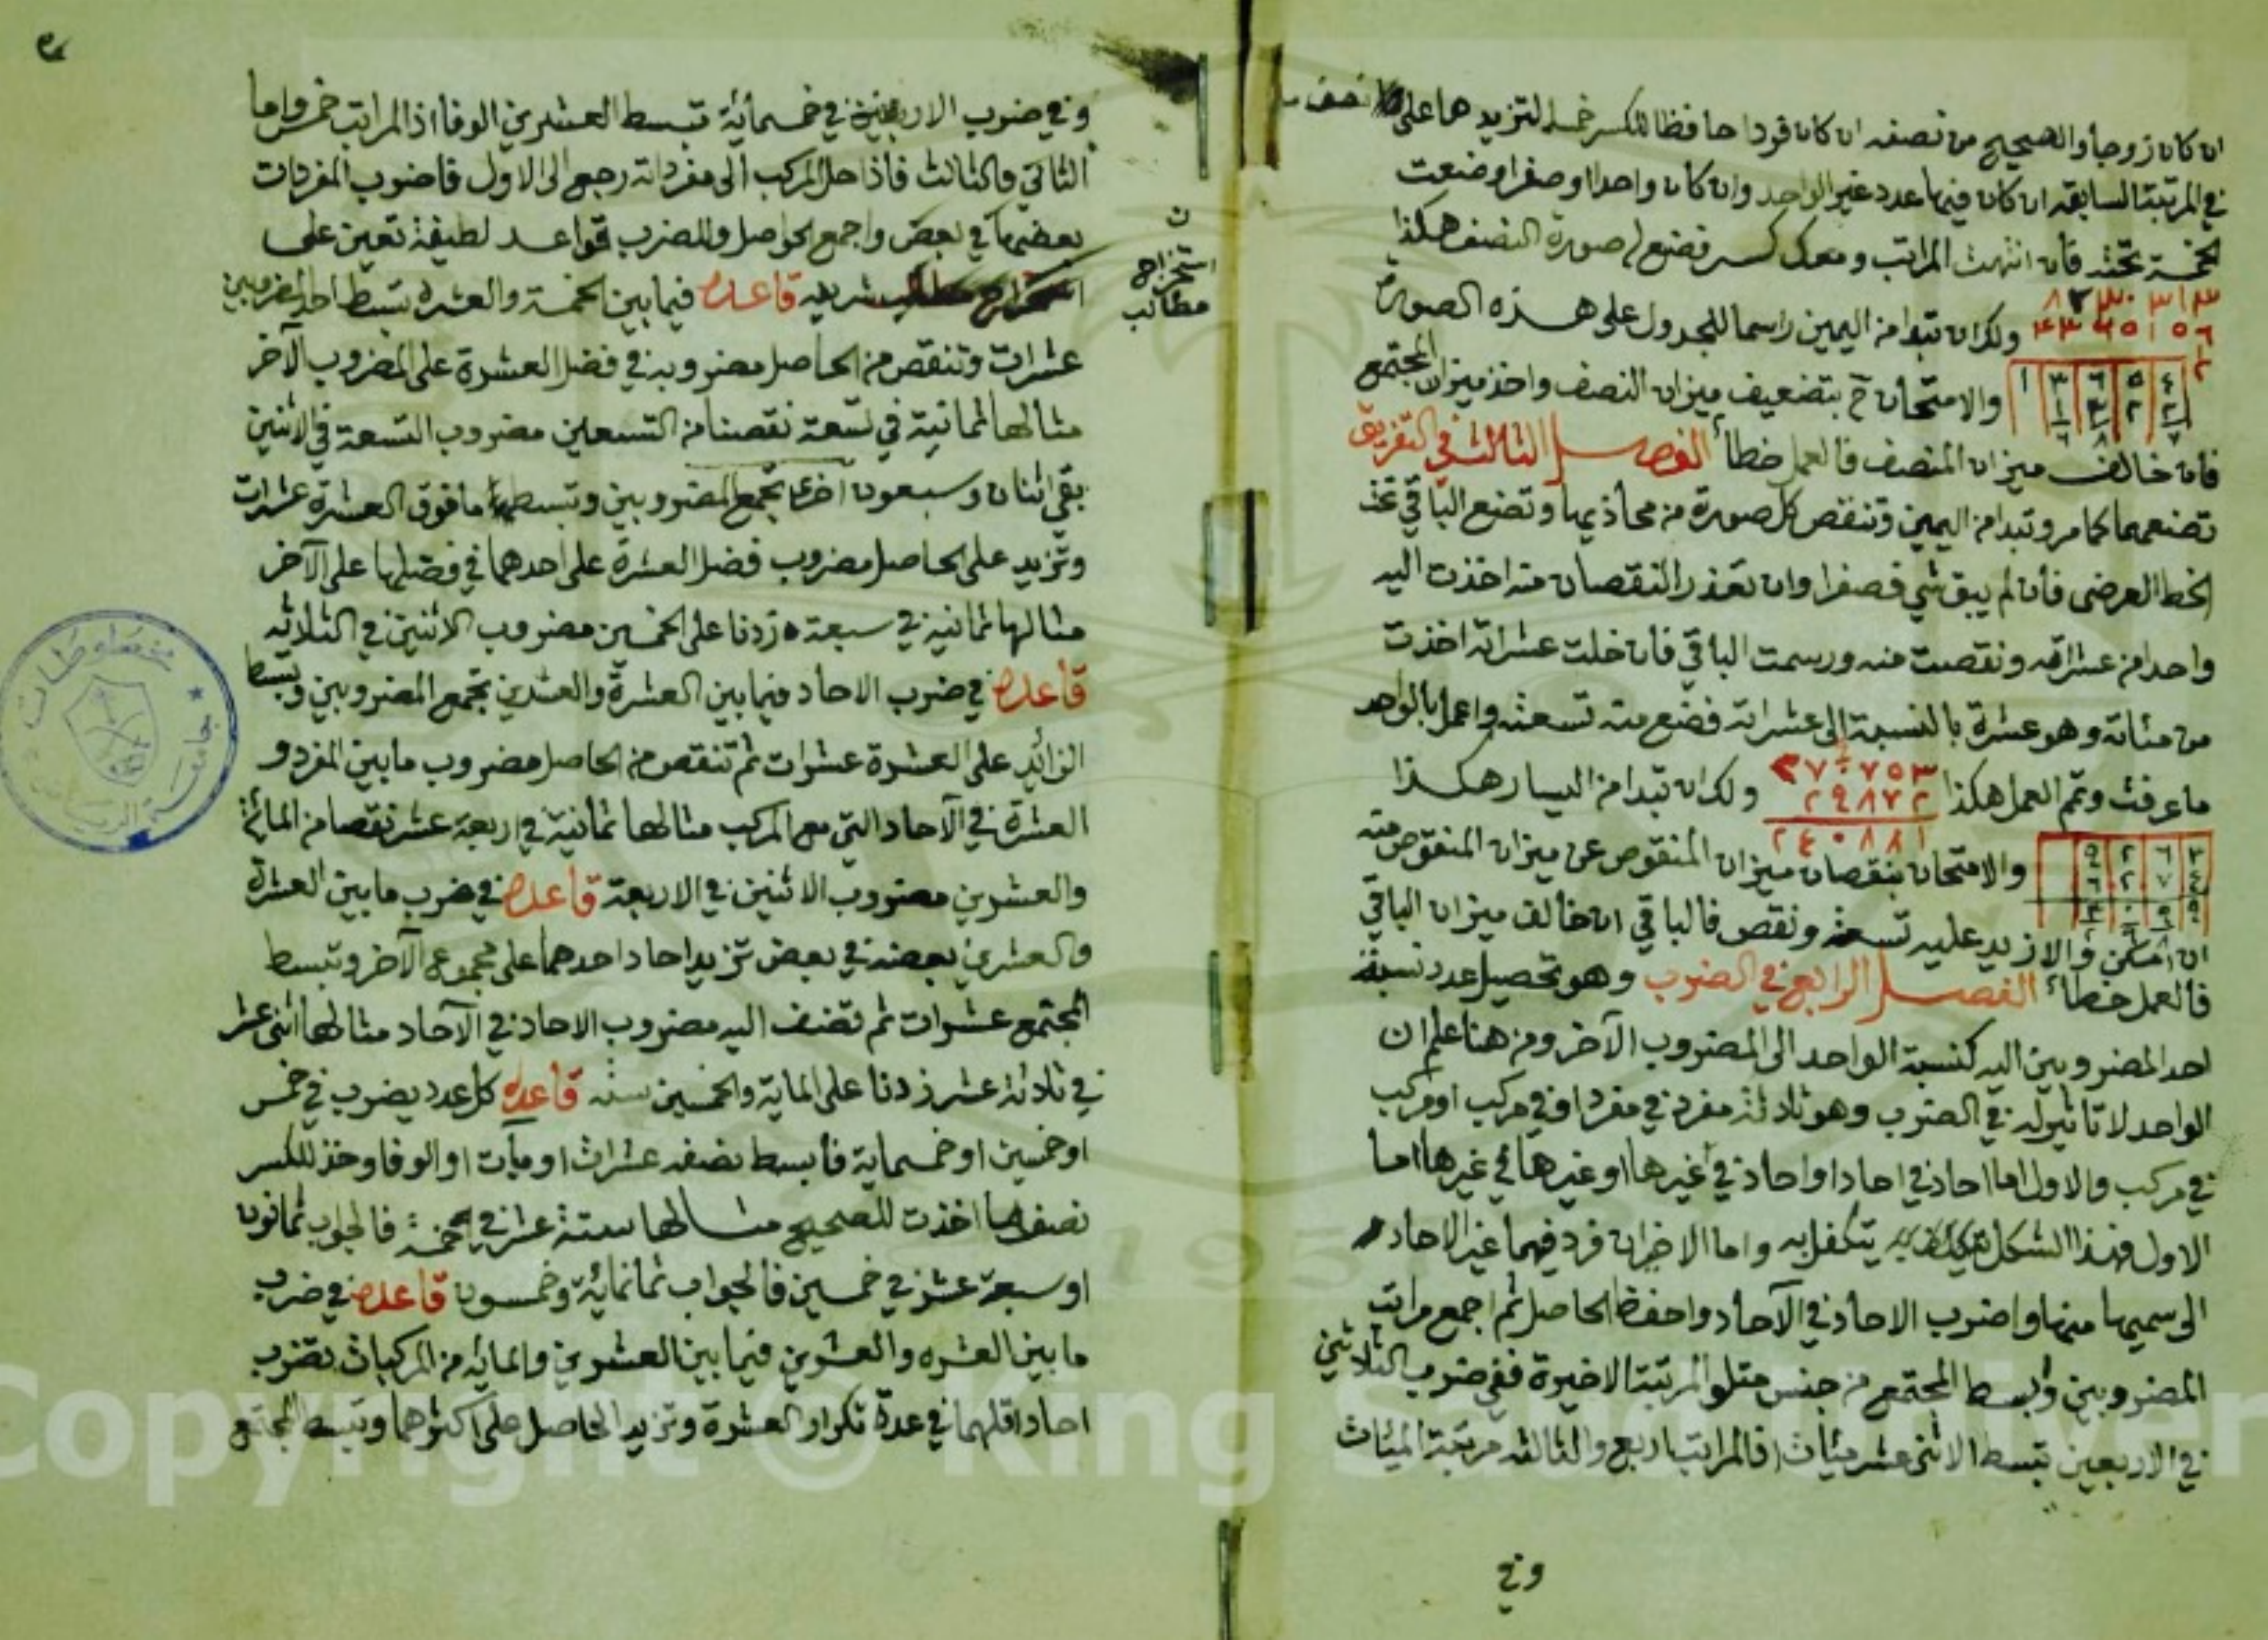 ان كان زوجا والصحيح من نصفه ان كان فردا حافظا للكسر خمسة لتزيدها على نصف ما
في المرتبة السابقة ان كان فيها عدد غير الواحد وان كان واحدا او صفرا وضعت
الخمسة تحته فأن انتهت المراتب ومعك كسر فضع له صورة النصف هكذا
ولك ان تبدا من اليمين راسما للجدول على هذه الصورة
والامتحان بتضعيف ميزان النصف واخذ ميزان المجتمع
فان خالف ميزان المنصف فالعمل خطأ الفصل الثالث في التفريق
تضعهما كما مر وتبدا من اليمين وتنقص كل صورة من محاذيها وتضع الباقي تحت
الخط العرضي فأن لم يبق شي فصفرا وان تعذر النقصان منه اخذت اليه
واحدا من عشراته ونقصت منه ورسمت الباقي فأن خلت عشراته اخذت
من مئاته وهو عشرة بالنسبة الى عشراته فضع منه تسعة واعمل بالواحد
ما عرفت وتم العمل هكذا ٢٧٠٧٥٣ ولك ان تبدا من اليسار هكذا
٢٩٨٧٢
٢٤٠٨٨١
والامتحان بنقصان ميزان المنقوص عن ميزان المنقوص منه
ان امكن والا زيد عليه تسعة ونقص فالباقي ان خالف ميزان الباقي
فالعمل خطأ الفصل الرابع في الضرب وهو تحصيل عدد نسبة
احد المضروبين اليه كنسبة الواحد الى المضروب الآخر ومن هنا علم ان
الواحد لا تاثير له في الضرب وهو ثلاثة مفرد في مفرد او في مركب او مركب
في مركب والاول اما احاد في احاد او احاد في غيرها او غيرها في غيرها اما
الاول فهذا الشكل يتكفل به واما الاخيران فرد فيهما غير الاحاد
الى سميها منها واضرب الاحاد في الآحاد واحفظ الحاصل ثم اجمع مراتب
المضروبين وابسط المجتمع من جنس متلو المرتبة الاخيرة ففي ضرب الثلاثين
في الاربعين تبسط الاثني عشر مئات اذ المراتب اربع والثالثة مرتبة المئات
وفي
وفي ضرب الاربعين في خمسمائة تبسط العشرين الوفا اذ المراتب خمس واما
الثاني والثالث فأذا حل المركب الى مفرداته رجع الى الاول فاضرب المفردات
بعضها في بعض واجمع الحواصل وللضرب قواعد لطيفة تعين على
استخراج
مطالب
شريفه قاعده فيما بين الخمسة والعشرة تبسط احد المضروبين
عشرات وتنقص من الحاصل مضروبه في فضل العشرة على المضروب الآخر
مثالها ثمانية في تسعة نقصنا من التسعين مضروب التسعة في الاثنين
بقي اثنان وسبعون اخرى تجمع المضروبين وتبسط ما فوق العشرة عشرات
وتزيد على الحاصل مضروب فضل العشرة على احدهما في فضلها على الآخر
مثالها ثمانية في سبعة زدنا على الخمسين مضروب الاثنين في الثلاثه
قاعده في ضرب الاحاد فيما بين العشرة والعشرين تجمع المضروبين وتبسط
الزائد على العشرة عشرات ثم تنقص من الحاصل مضروب ما بين المفرد و
العشرة في الآحاد التي مع المركب مثالها ثمانية في اربعة عشر نقصنا من المائة
والعشرين مضروب الاثنين في الاربعة قاعده في ضرب ما بين العشرة
والعشرين بعضه في بعض تزيد احاد احدهما على مجموع الآخر وتبسط
المجتمع عشرات ثم تضف اليه مضروب الاحاد في الآحاد مثالها اثنى عشر
في ثلاثة عشر زدنا على الماية والخمسين ستة قاعده كل عدد يضرب في خمس
او خمسين او خمسماية فأبسط نصفه عشرات او ميآت او الوفا وخذ للكسر
نصف ما اخذت للصحيح مثالها ستة عشر في خمسة فالجواب ثمانون
او سبعة عشر في خمسين فالجواب ثمانمائة وخمسون قاعده في ضرب
ما بين العشره والعشرين فيما بين العشرين والمائه من المركبات تضرب
احاد اقلهما في عدة تكرار العشرة وتزيد الحاصل على اكثرهما وتبسط المجتمع